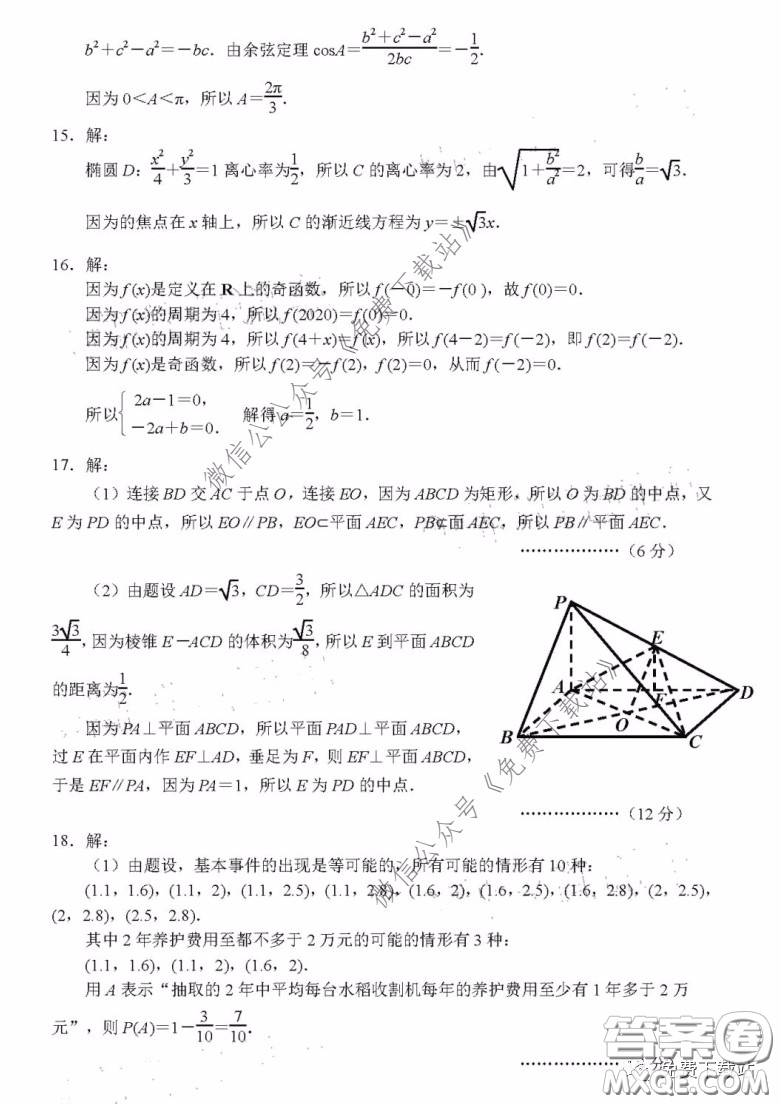 b²+c²-a²=-bc. 由余弦定理 cosA=\frac{b²+c²-a²}{2bc}=-\frac{1}{2}.
因为 0<A<π，所以 A=\frac{2π}{3}.
15. 解：
椭圆 D：\frac{x²}{4}+\frac{y²}{3}=1 离心率为\frac{1}{2}，所以 C 的离心率为 2，由\sqrt{1+\frac{b²}{a²}}=2，可得\frac{b}{a}=√3.
因为的焦点在 x 轴上，所以 C 的渐近线方程为 y=±√3x.
16. 解：
因为 f (x)是定义在 R 上的奇函数，所以 f (-0)=-f(0 )，故 f(0)=0.
因为 f (x)的周期为 4，所以 f (2020)=f(0)=0.
因为 f (x)的周期为 4，所以 f(4+x)=f(x)，所以 f(4-2)=f(-2)，即 f(2)=f(-2).
因为 f (x)是奇函数，所以 f(2)=-f(2)，f(2)=0，从而 f(-2)=0.
所以{ 2a-1=0，
-2a+b=0. 解得 a=\frac{1}{2}，b=1.
17. 解：
（1）连接 BD 交 AC 于点 O，连接 EO，因为 ABCD 为矩形，所以 O 为 BD 的中点，又
E 为 PD 的中点，所以 EO∥PB，EO⊂平面 AEC，PB⊄面 AEC，所以 PB∥平面 AEC.
………………（6 分）
（2）由题设 AD=√3，CD=\frac{3}{2}，所以△ADC 的面积为
\frac{3√3}{4}，因为棱锥 E-ACD 的体积为\frac{√3}{8}，所以 E 到平面 ABCD
的距离为\frac{1}{2}.
因为 PA⊥平面 ABCD，所以平面 PAD⊥平面 ABCD，
过 E 在平面内作 EF⊥AD，垂足为 F，则 EF⊥平面 ABCD，
于是 EF∥PA，因为 PA=1，所以 E 为 PD 的中点.
P
E
A
F
D
O
B
C
………………（12 分）
18. 解：
（1）由题设，基本事件的出现是等可能的，所有可能的情形有 10 种：
(1.1，1.6)，(1.1，2)，(1.1，2.5)，(1.1，2.8)，(1.6，2)，(1.6，2.5)，(1.6，2.8)，(2，2.5)，
(2，2.8)，(2.5，2.8).
其中 2 年养护费用至都不多于 2 万元的可能的情形有 3 种：
(1.1，1.6)，(1.1，2)，(1.6，2).
用 A 表示“抽取的 2 年中平均每台水稻收割机每年的养护费用至少有 1 年多于 2 万
元”，则 P(A)=1-\frac{3}{10}=\frac{7}{10}.
微信公众号《免费下载站》
微信公众号《免费下载站》
答案圈
MXQE.COM
免费下载站